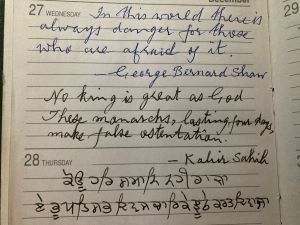 December
27 WEDNESDAY
29
In this world there is
always danger for those
who are afraid of it.
—George Bernard Shaw
No king is great as God
These monarchs, lasting four days,
make false ostentation.
28 THURSDAY
— Kabir Sahib
ਕੋਊ ਹਰਿ ਸਮਾਨਿ ਨਹੀ ਰਾਜਾ
ਏ ਭੂਪਤਿ ਸਭ ਦਿਵਸ ਚਾਰਿ ਕੇ ਝੂਠੇ ਕਰਤ ਦਿਵਾਜਾ